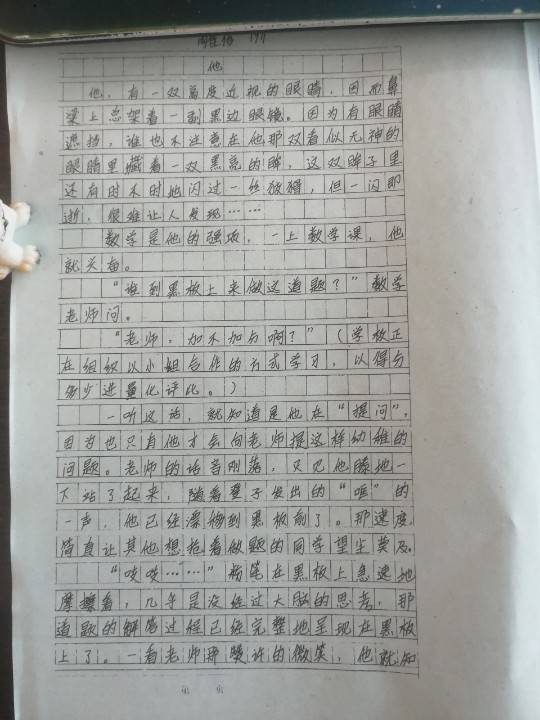 他
他，有一双高度近视的眼睛，因而鼻
梁上总架着一副黑边眼镜。因为有眼睛
遮挡，谁也不注意在他那双看似无神的
眼睛里藏着一双黑亮的眸，这双眸子里
还有时不时地闪过一丝狡猾，但一闪即
逝，很难让人发现……
数学是他的强项，一上数学课，他
就兴奋。
“谁到黑板上来做这道题？”数学
老师问。
“老师，加不加分啊？”（学校正
在组织以小组合作的方式学习，以得分
多少进量化评比。）
一听这话，就知道是他在“提问”，
因为也只有他才会向老师提这样幼稚的
问题。老师的话音刚落，只见他腾地一
下站了起来，随着凳子发出的“咣”的
一声，他已经漂移到黑板前了。那速度，
简直让其他想抢着做题的同学望尘莫及。
“吱吱……”粉笔在黑板上急速地
摩擦着，几乎是没经过大脑的思考，那
道题的解答过程已经完整地呈现在黑板
上了。一看老师那赞许的微笑，他就知